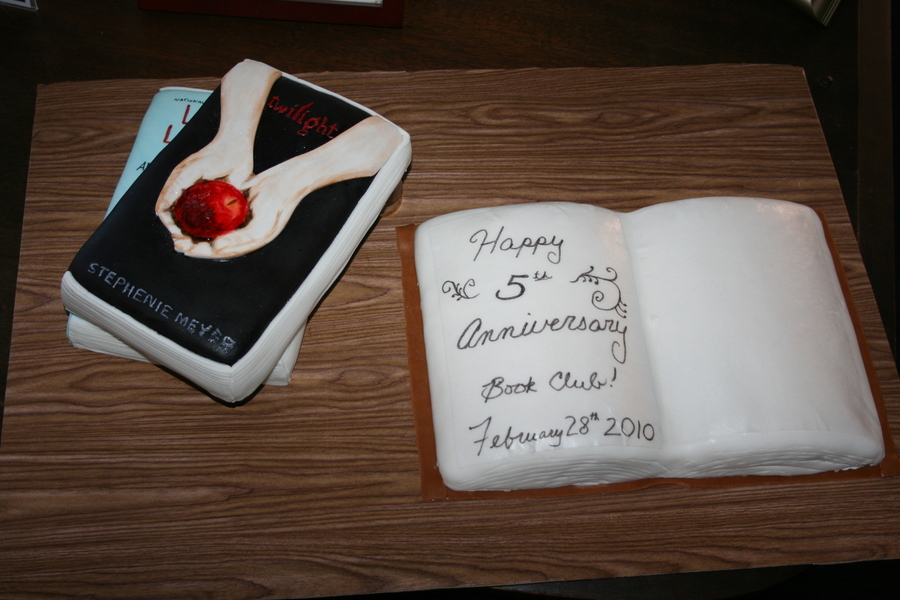 twilight
STEPHENIE MEYER
Happy
5th
Anniversary
Book Club!
February 28th 2010